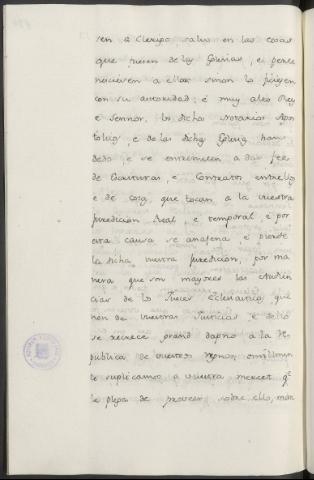 sen á Clerigo, salvo en las cosas
que fuesen de las Iglesias, e perte
nesciesen á ellas, sinon lo ficiesen
con su autoridad; é muy alto Rey
é Sennor, los dichos Notarios Apos
tolicos, é de las dichas Iglesias han
dado, e se entremeten a dar fee
de Escrituras, e Contratos entre legos
e de cosas, que tocan á la vuestra
Jurediccion Real, e temporal e por
esta causa se anagena, é pierde
la dicha vuestra Juredicion, por ma
nera que son mayores las Audien
cias de los Jueces Eclesiasticos, que
non de vuestras Justicias, e dello
se recrece grand dapno á la Re
publica de vuestros Regnos, omillmen
te suplicamos a vuestra mercet qe
le plega de proveer sobre ello, man